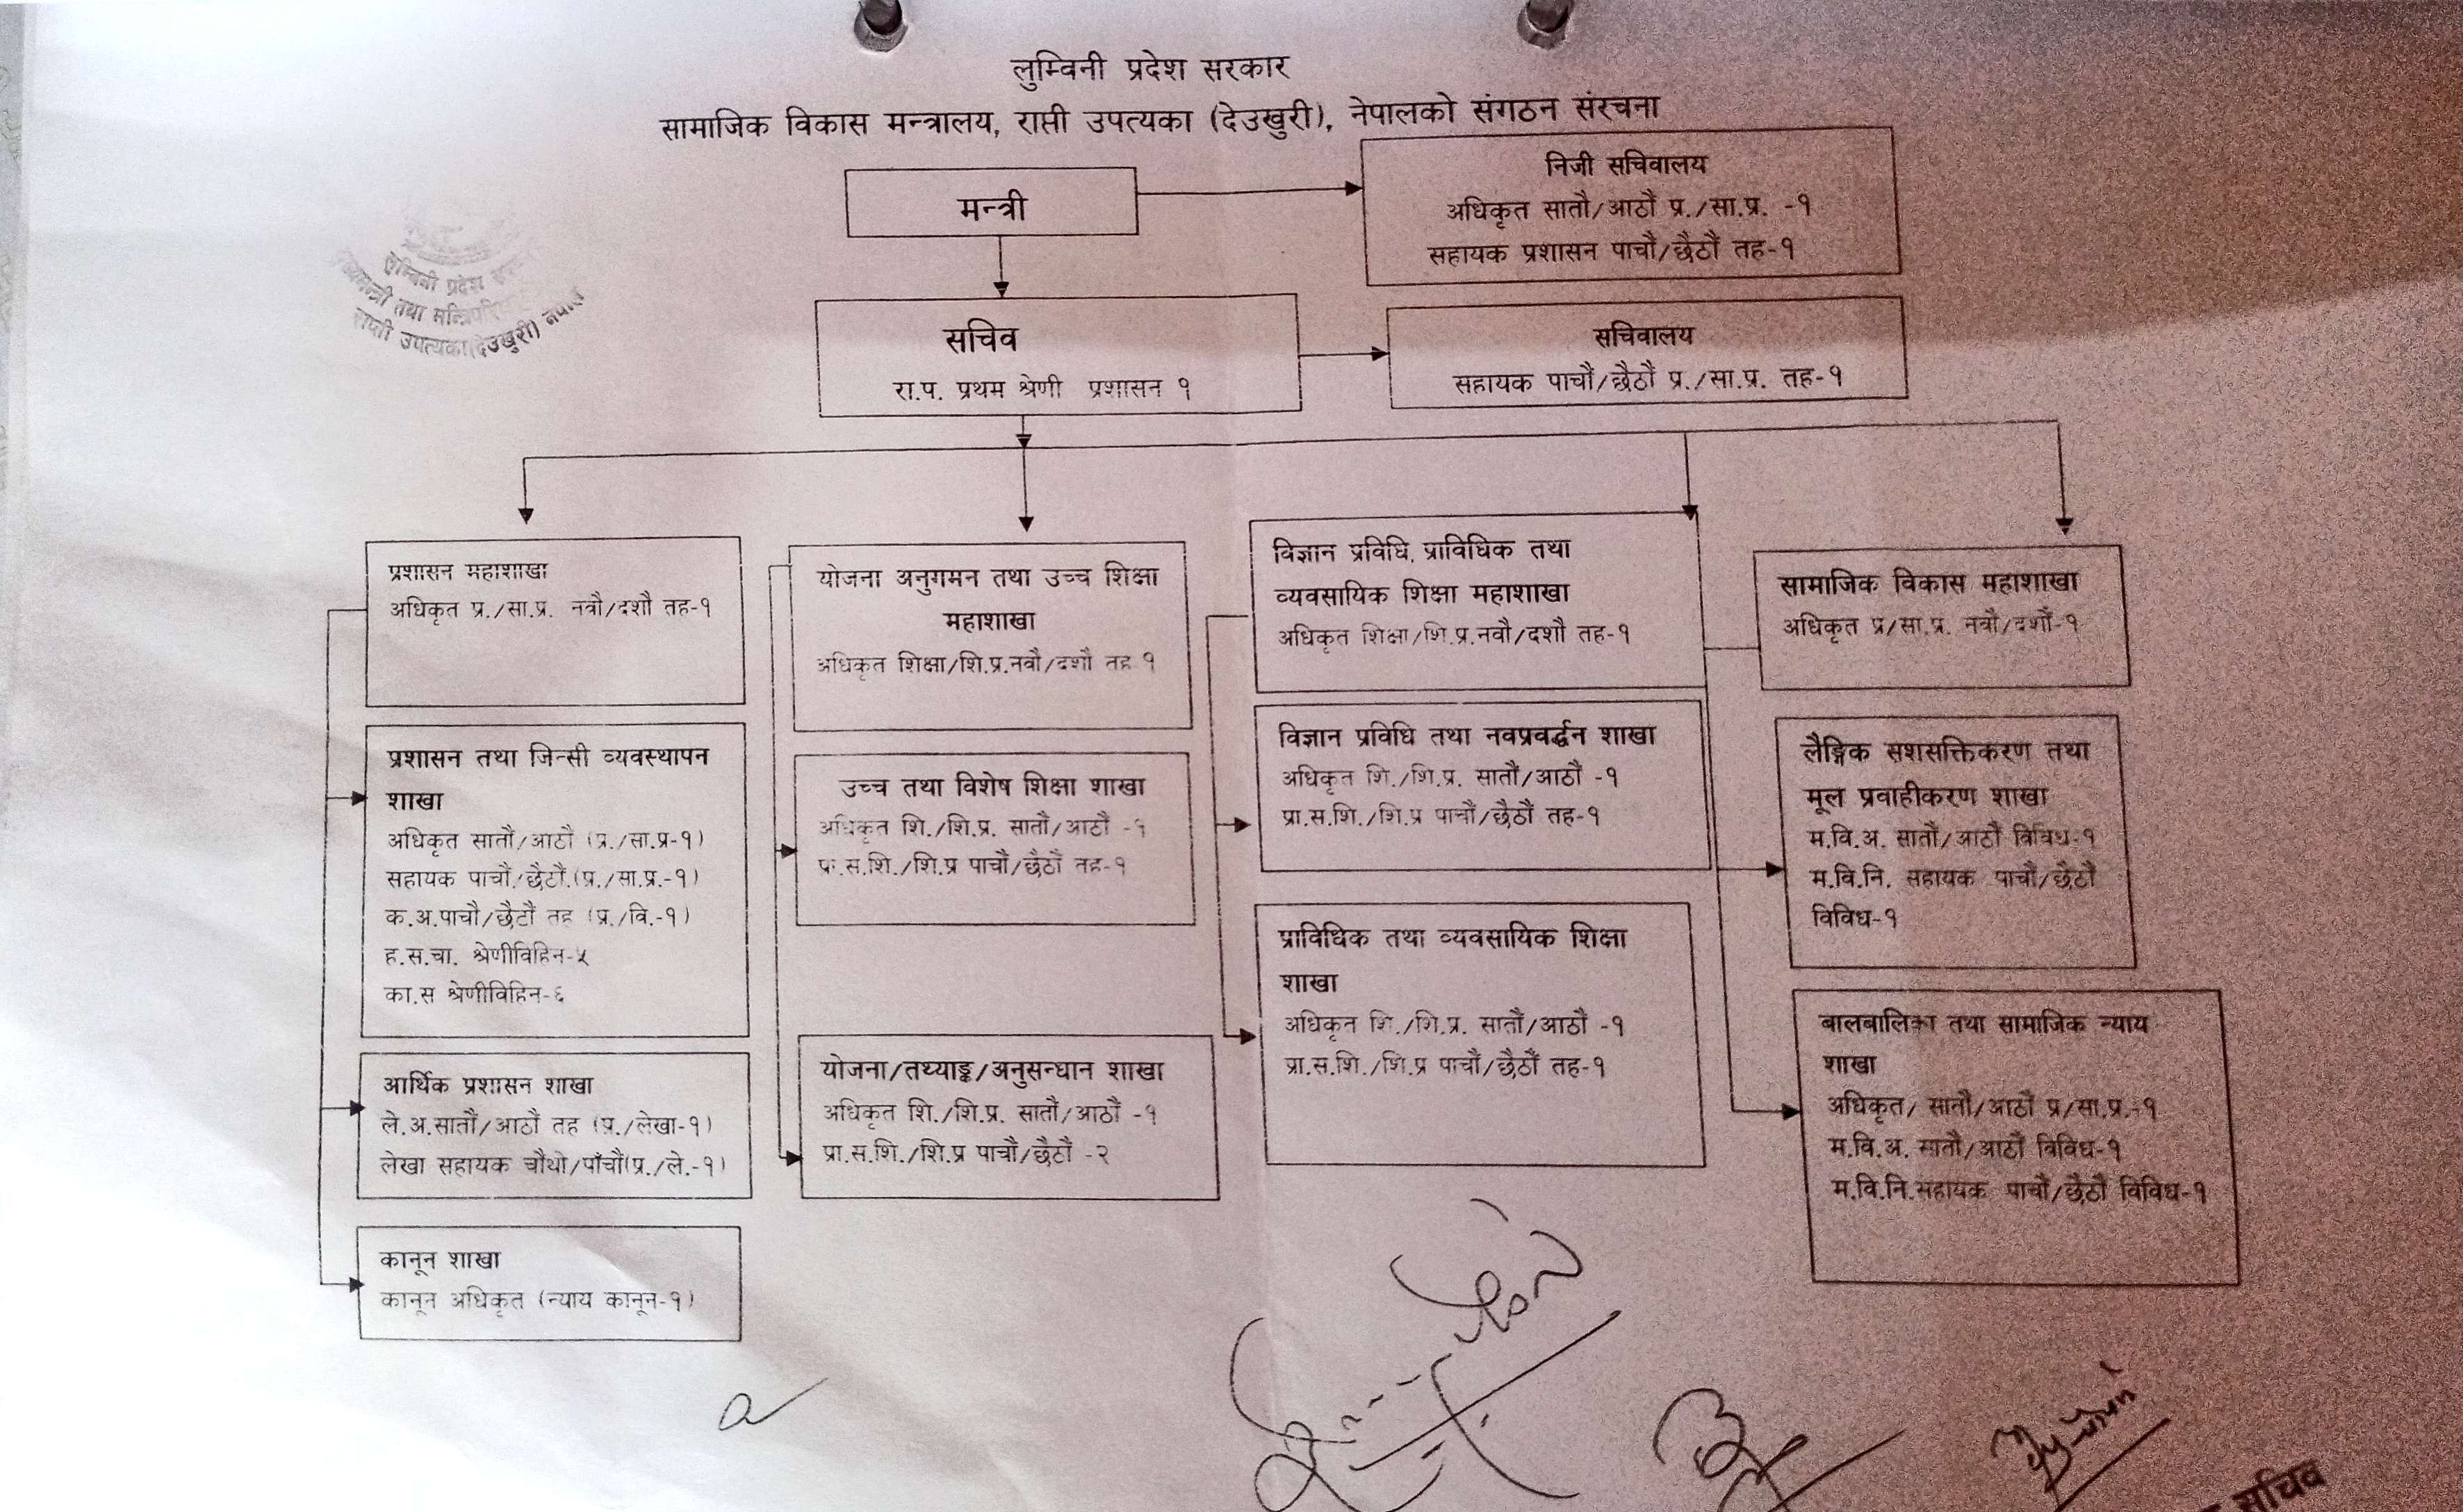 लुम्विनी प्रदेश सरकार
सामाजिक विकास मन्त्रालय, राप्ती उपत्यका (देउखुरी), नेपालको संगठन संरचना
मन्त्री
निजी सचिवालय
अधिकृत सातौ/आठौं प्र./सा.प्र. -१
सहायक प्रशासन पाचौं/छैठौं तह-१
लुम्विनी प्रदेश
तथा
राप्ती उपत्यका(देउखुरी) नेपाल
सचिव
रा.प. प्रथम श्रेणी प्रशासन १
सचिवालय
सहायक पाचौं/छैठौं प्र./सा.प्र. तह-१
प्रशासन महाशाखा
अधिकृत प्र./सा.प्र. नवौ/दशौ तह-१
प्रशासन तथा जिन्सी व्यवस्थापन
शाखा
अधिकृत सातौं/आठौं (प्र./सा.प्र-१)
सहायक पाचौं/छैठौं.(प्र./सा.प्र.-१)
क.अ.पाचौं/छैठौं तह (प्र./वि.-१)
ह.स.चा. श्रेणीविहिन-५
का.स श्रेणीविहिन-६
आर्थिक प्रशासन शाखा
ले.अ.सातौं/आठौं तह (प्र./लेखा-१)
लेखा सहायक चौथो/पाँचौं(प्र./ले.-१)
कानून शाखा
कानून अधिकृत (न्याय कानून-१)
योजना अनुगमन तथा उच्च शिक्षा
महाशाखा
अधिकृत शिक्षा/शि.प्र.नवौ/दशौ तह-१
उच्च तथा विशेष शिक्षा शाखा
अधिकृत शि./शि.प्र. सातौं/आठौं -१
प्रा.स.शि./शि.प्र पाचौं/छैठौं तह-१
योजना/तथ्याङ्क/अनुसन्धान शाखा
अधिकृत शि./शि.प्र. सातौं/आठौं -१
प्रा.स.शि./शि.प्र पाचौं/छैठौं -२
विज्ञान प्रविधि, प्राविधिक तथा
व्यवसायिक शिक्षा महाशाखा
अधिकृत शिक्षा/शि.प्र.नवौ/दशौ तह-१
विज्ञान प्रविधि तथा नवप्रवर्द्धन शाखा
अधिकृत शि./शि.प्र. सातौं/आठौं -१
प्रा.स.शि./शि.प्र पाचौं/छैठौं तह-१
प्राविधिक तथा व्यवसायिक शिक्षा
शाखा
अधिकृत शि./शि.प्र. सातौं/आठौं -१
प्रा.स.शि./शि.प्र पाचौं/छैठौं तह-१
सामाजिक विकास महाशाखा
अधिकृत प्र/सा.प्र. नवौ/दशौं-१
लैङ्गिक सशसक्तिकरण तथा
मूल प्रवाहीकरण शाखा
म.वि.अ. सातौं/आठौं विविध-१
म.वि.नि. सहायक पाचौं/छैठौं
विविध-१
बालबालिका तथा सामाजिक न्याय
शाखा
अधिकृत/ सातौं/आठौं प्र/सा.प्र.-१
म.वि.अ. सातौं/आठौं विविध-१
म.वि.नि.सहायक पाचौं/छैठौं विविध-१
सचिव